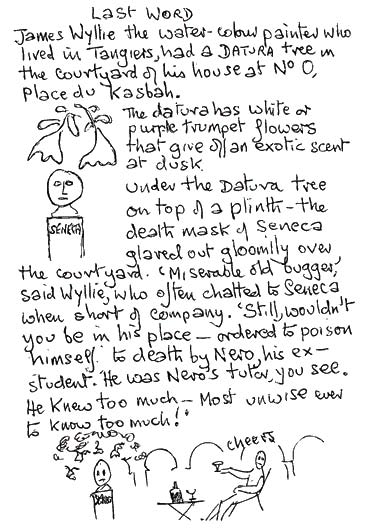 LAST WORD
James Wyllie the water-colour painter who
lived in Tangiers, had a DATURA tree in
the courtyard of his house at Nº 0,
Place du Kasbah.
The datura has white or
purple trumpet flowers
that give of an exotic scent
at dusk.
Under the Datura tree
on top of a plinth - the
death mask of Seneca
SENECA
glared out gloomily over
the courtyard. 'Miserable old bugger,'
said Wyllie, who often chatted to Seneca
when short of company. 'Still, wouldn't
you be in his place - ordered to poison
himself to death by Nero, his ex-
student. He was Nero's tutor, you see.
He knew too much - Most unwise ever
to know too much!'
cheers